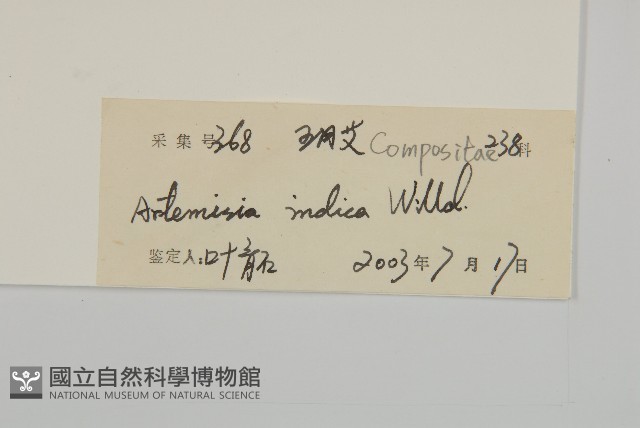 采集号 368 五月艾 Compositae 238 科
Artemisia indica Willd.
鉴定人: 叶育石 2003 年 7 月 17 日
國立自然科學博物館
NATIONAL MUSEUM OF NATURAL SCIENCE